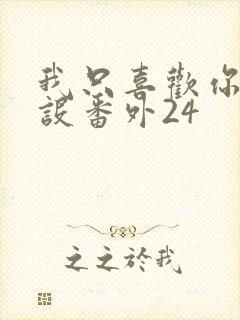 我只喜歡你
設番外24
之之於我